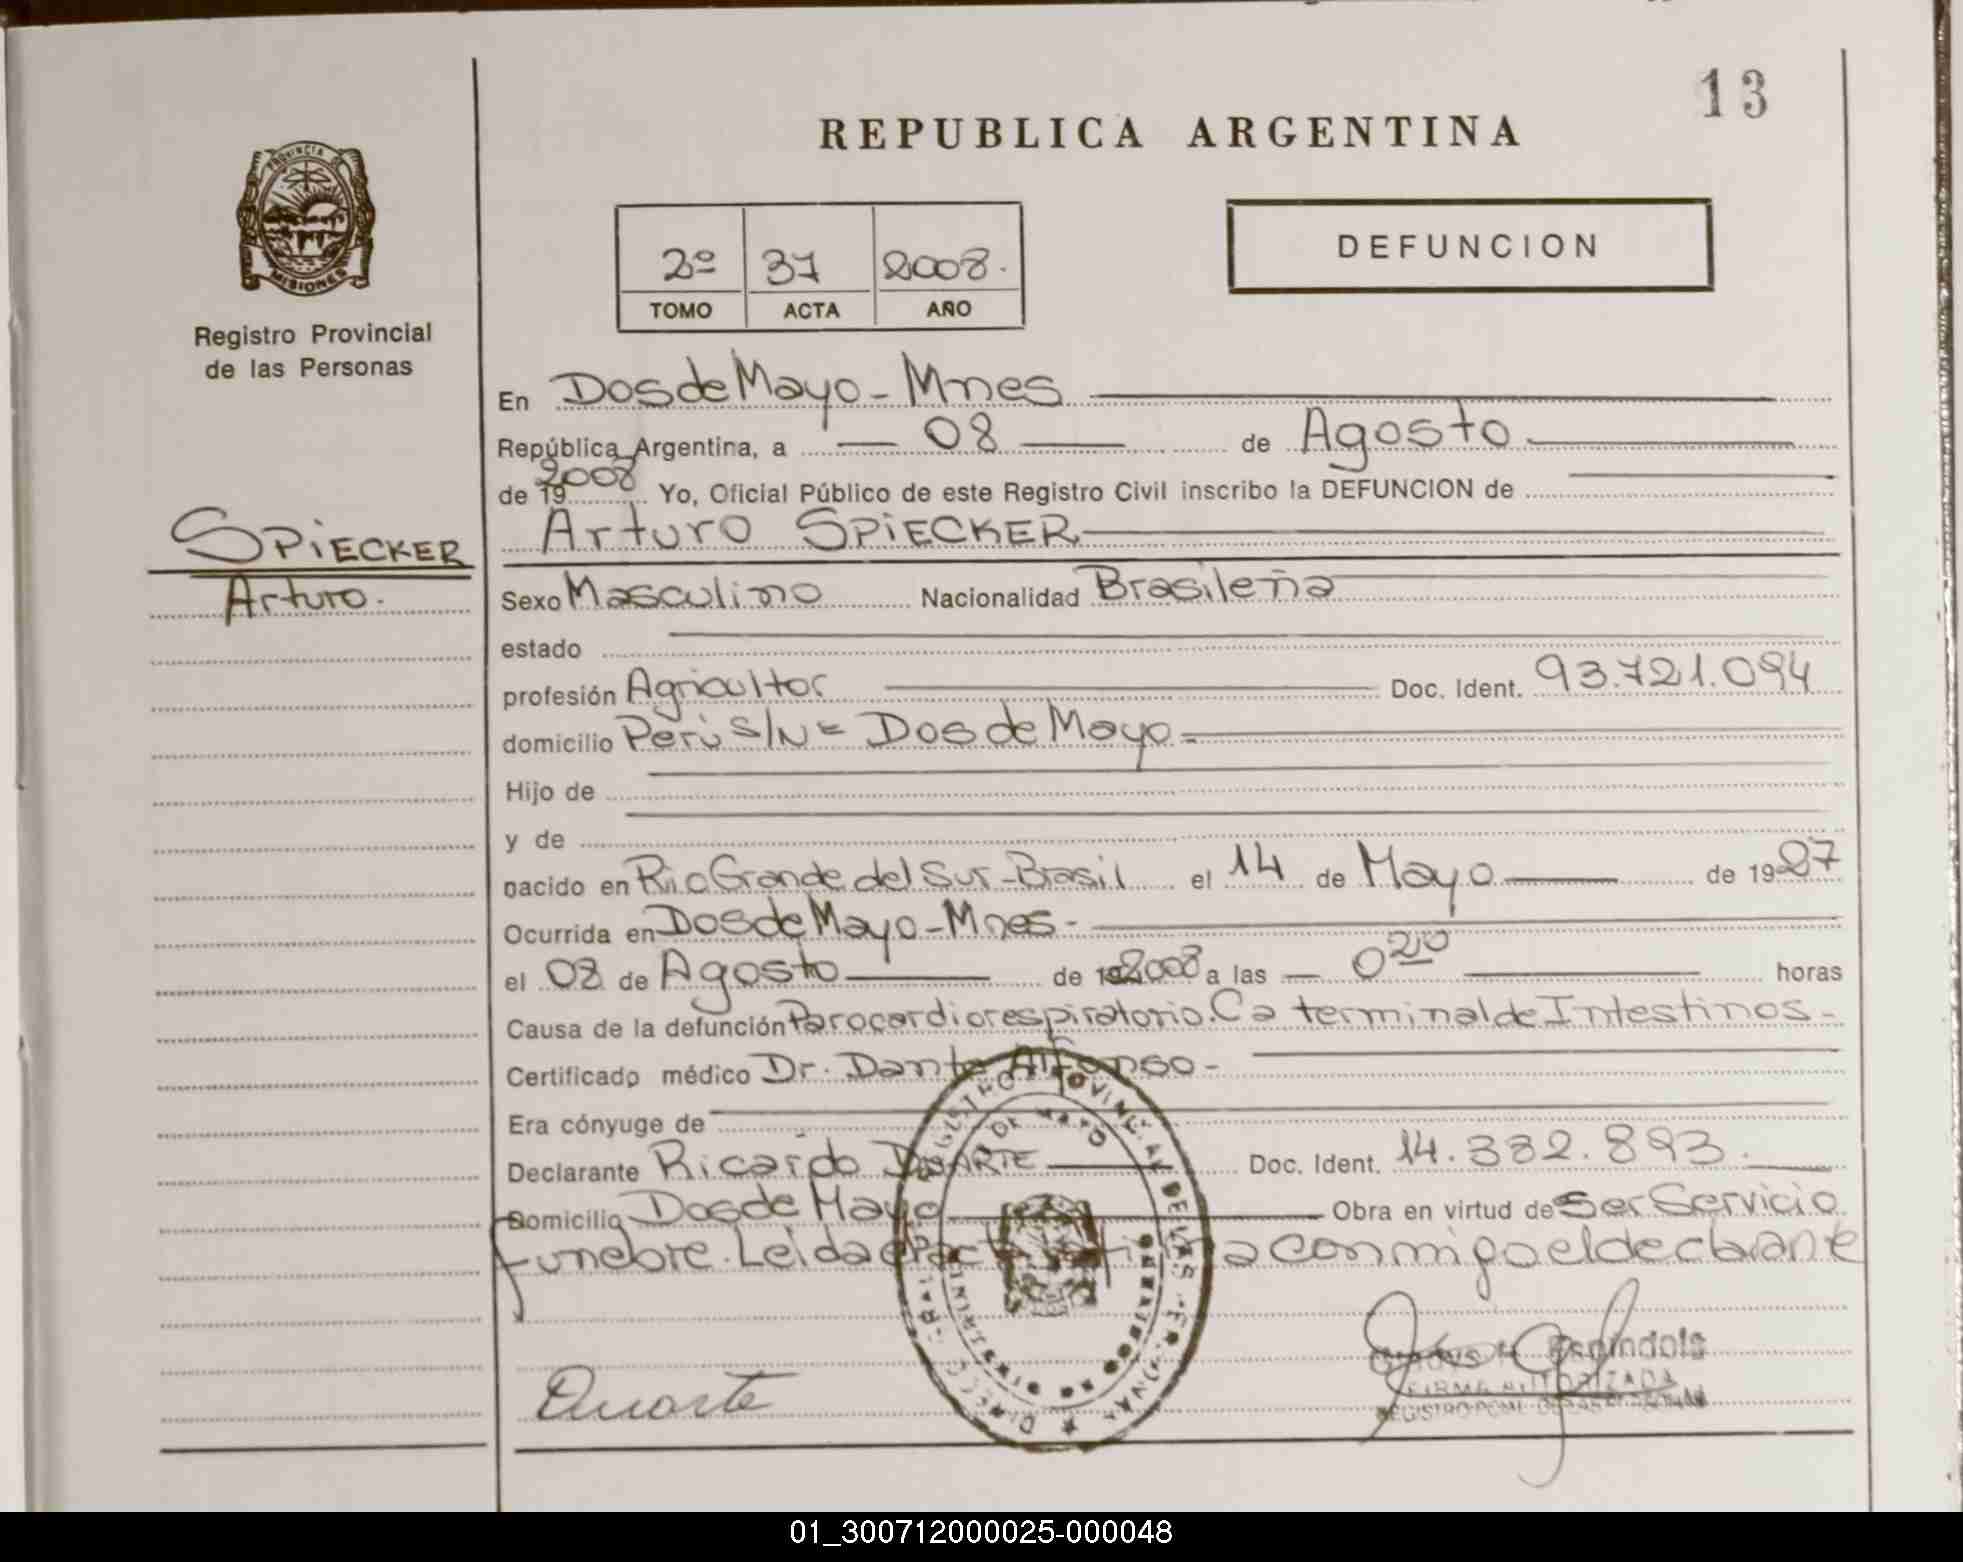 13
REPUBLICA ARGENTINA
PROVINCIA DE
MISIONES
Registro Provincial
de las Personas
2º 37 2008.
TOMO ACTA AÑO
DEFUNCION
SPiECKER
Arturo.
En Dos de Mayo - Mnes
República Argentina, a 08 de Agosto
de 19 2008 Yo, Oficial Público de este Registro Civil inscribo la DEFUNCION de
Arturo SPiECKER
Sexo Masculino Nacionalidad Brasileña
estado
profesión Agricultor Doc. Ident. 93.721.094
domicilio Perú S/N = Dos de Mayo -
Hijo de
y de
nacido en Rio Grande del Sur - Brasil el 14 de Mayo de 1927
Ocurrida en Dos de Mayo - Mnes -
el 08 de Agosto de 19 2008 a las 0 20 horas
Causa de la defunción Parocardiorespiratorio. Ca terminal de Intestinos -
Certificado médico Dr. Dante Alfonso -
Era cónyuge de
Declarante Ricardo DUARTE Doc. Ident. 14.332.893.
Domicilio Dos de Mayo Obra en virtud de Ser Servicio
funebre. Leida el acta la firma conmigo el declarante
Duarte
Espindola
FIRMA AUTORIZADA
01_300712000025-000048